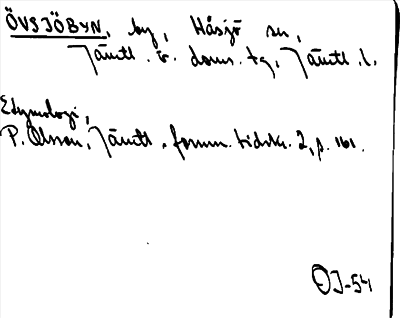 ÖVSJÖBYN, by, Håsjö sn,
Jämtl. ö. doms. tg, Jämtl. l.
Etymologi,
P. Olsson, Jämtl. fornm. tidskr. 2, p. 161.
OJ-54